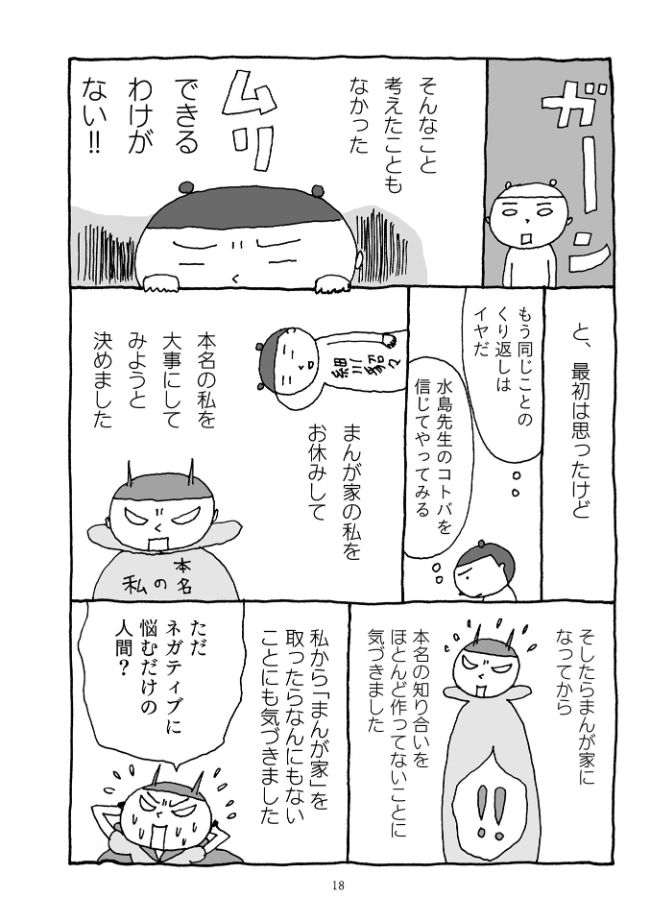 ガーン
そんなこと
考えたことも
なかった
ムリ
できる
わけが
ない!!
と、最初は思ったけど
もう同じことの
くり返しは
イヤだ
水島先生のコトバを
信じてやってみる
細川貂々
まんが家の私を
お休みして
本名の私を
大事にして
みようと
決めました
本名
の
私
そしたらまんが家に
なってから
本名の知り合いを
ほとんど作ってないことに
気づきました
!!
私から「まんが家」を
取ったらなんにもない
ことにも気づきました
ただ
ネガティブに
悩むだけの
人間?
18